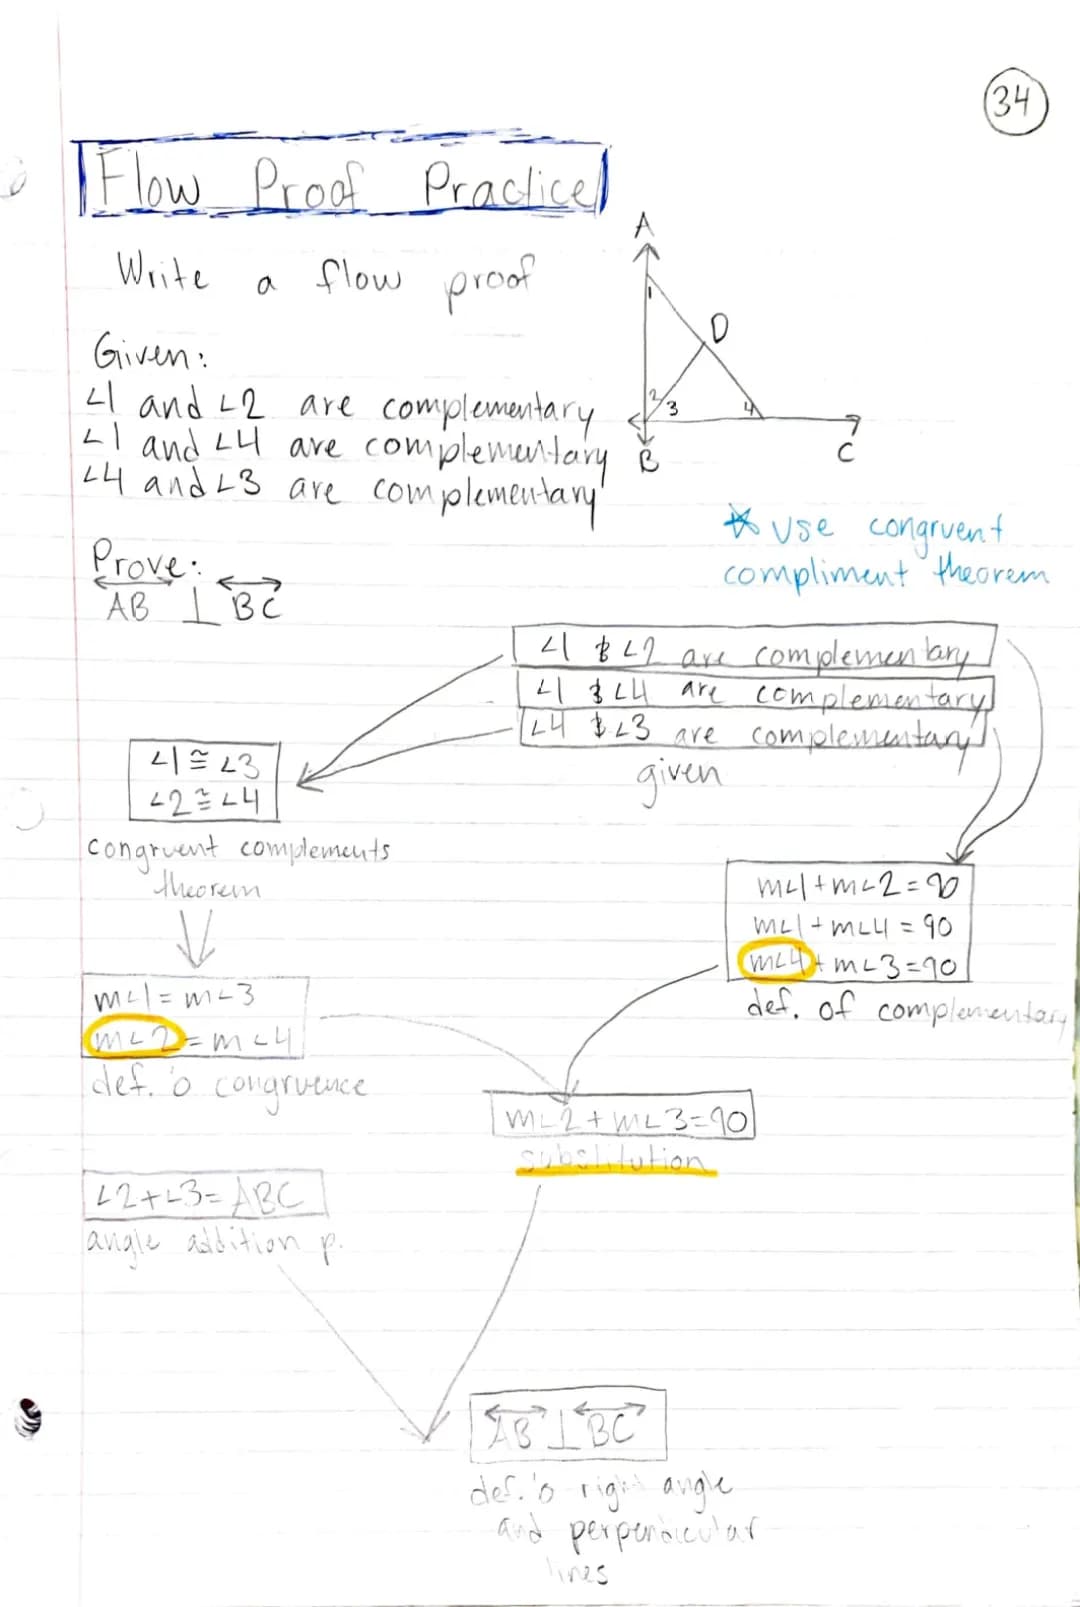 34
Flow Proof Practice
Write a flow proof
A
1
D
2
3
4
B
C
Given:
∠1 and ∠2 are complementary
∠1 and ∠4 are complementary
∠4 and ∠3 are complementary
Prove:
AB ⊥ BC
☆ Use congruent
compliment theorem
∠1 & ∠2 are complementary
∠1 & ∠4 are complementary
∠4 & ∠3 are complementary
given
∠1 ≅ ∠3
∠2 ≅ ∠4
congruent complements
theorem
m∠1 + m∠2 = 90
m∠1 + m∠4 = 90
m∠4 + m∠3 = 90
def. of complementary
m∠1 = m∠3
m∠2 = m∠4
def. 'o congruence
m∠2 + m∠3 = 90
substitution
∠2 + ∠3 = ABC
angle addition p.
AB ⊥ BC
def. 'o right angle
and perpendicular
lines